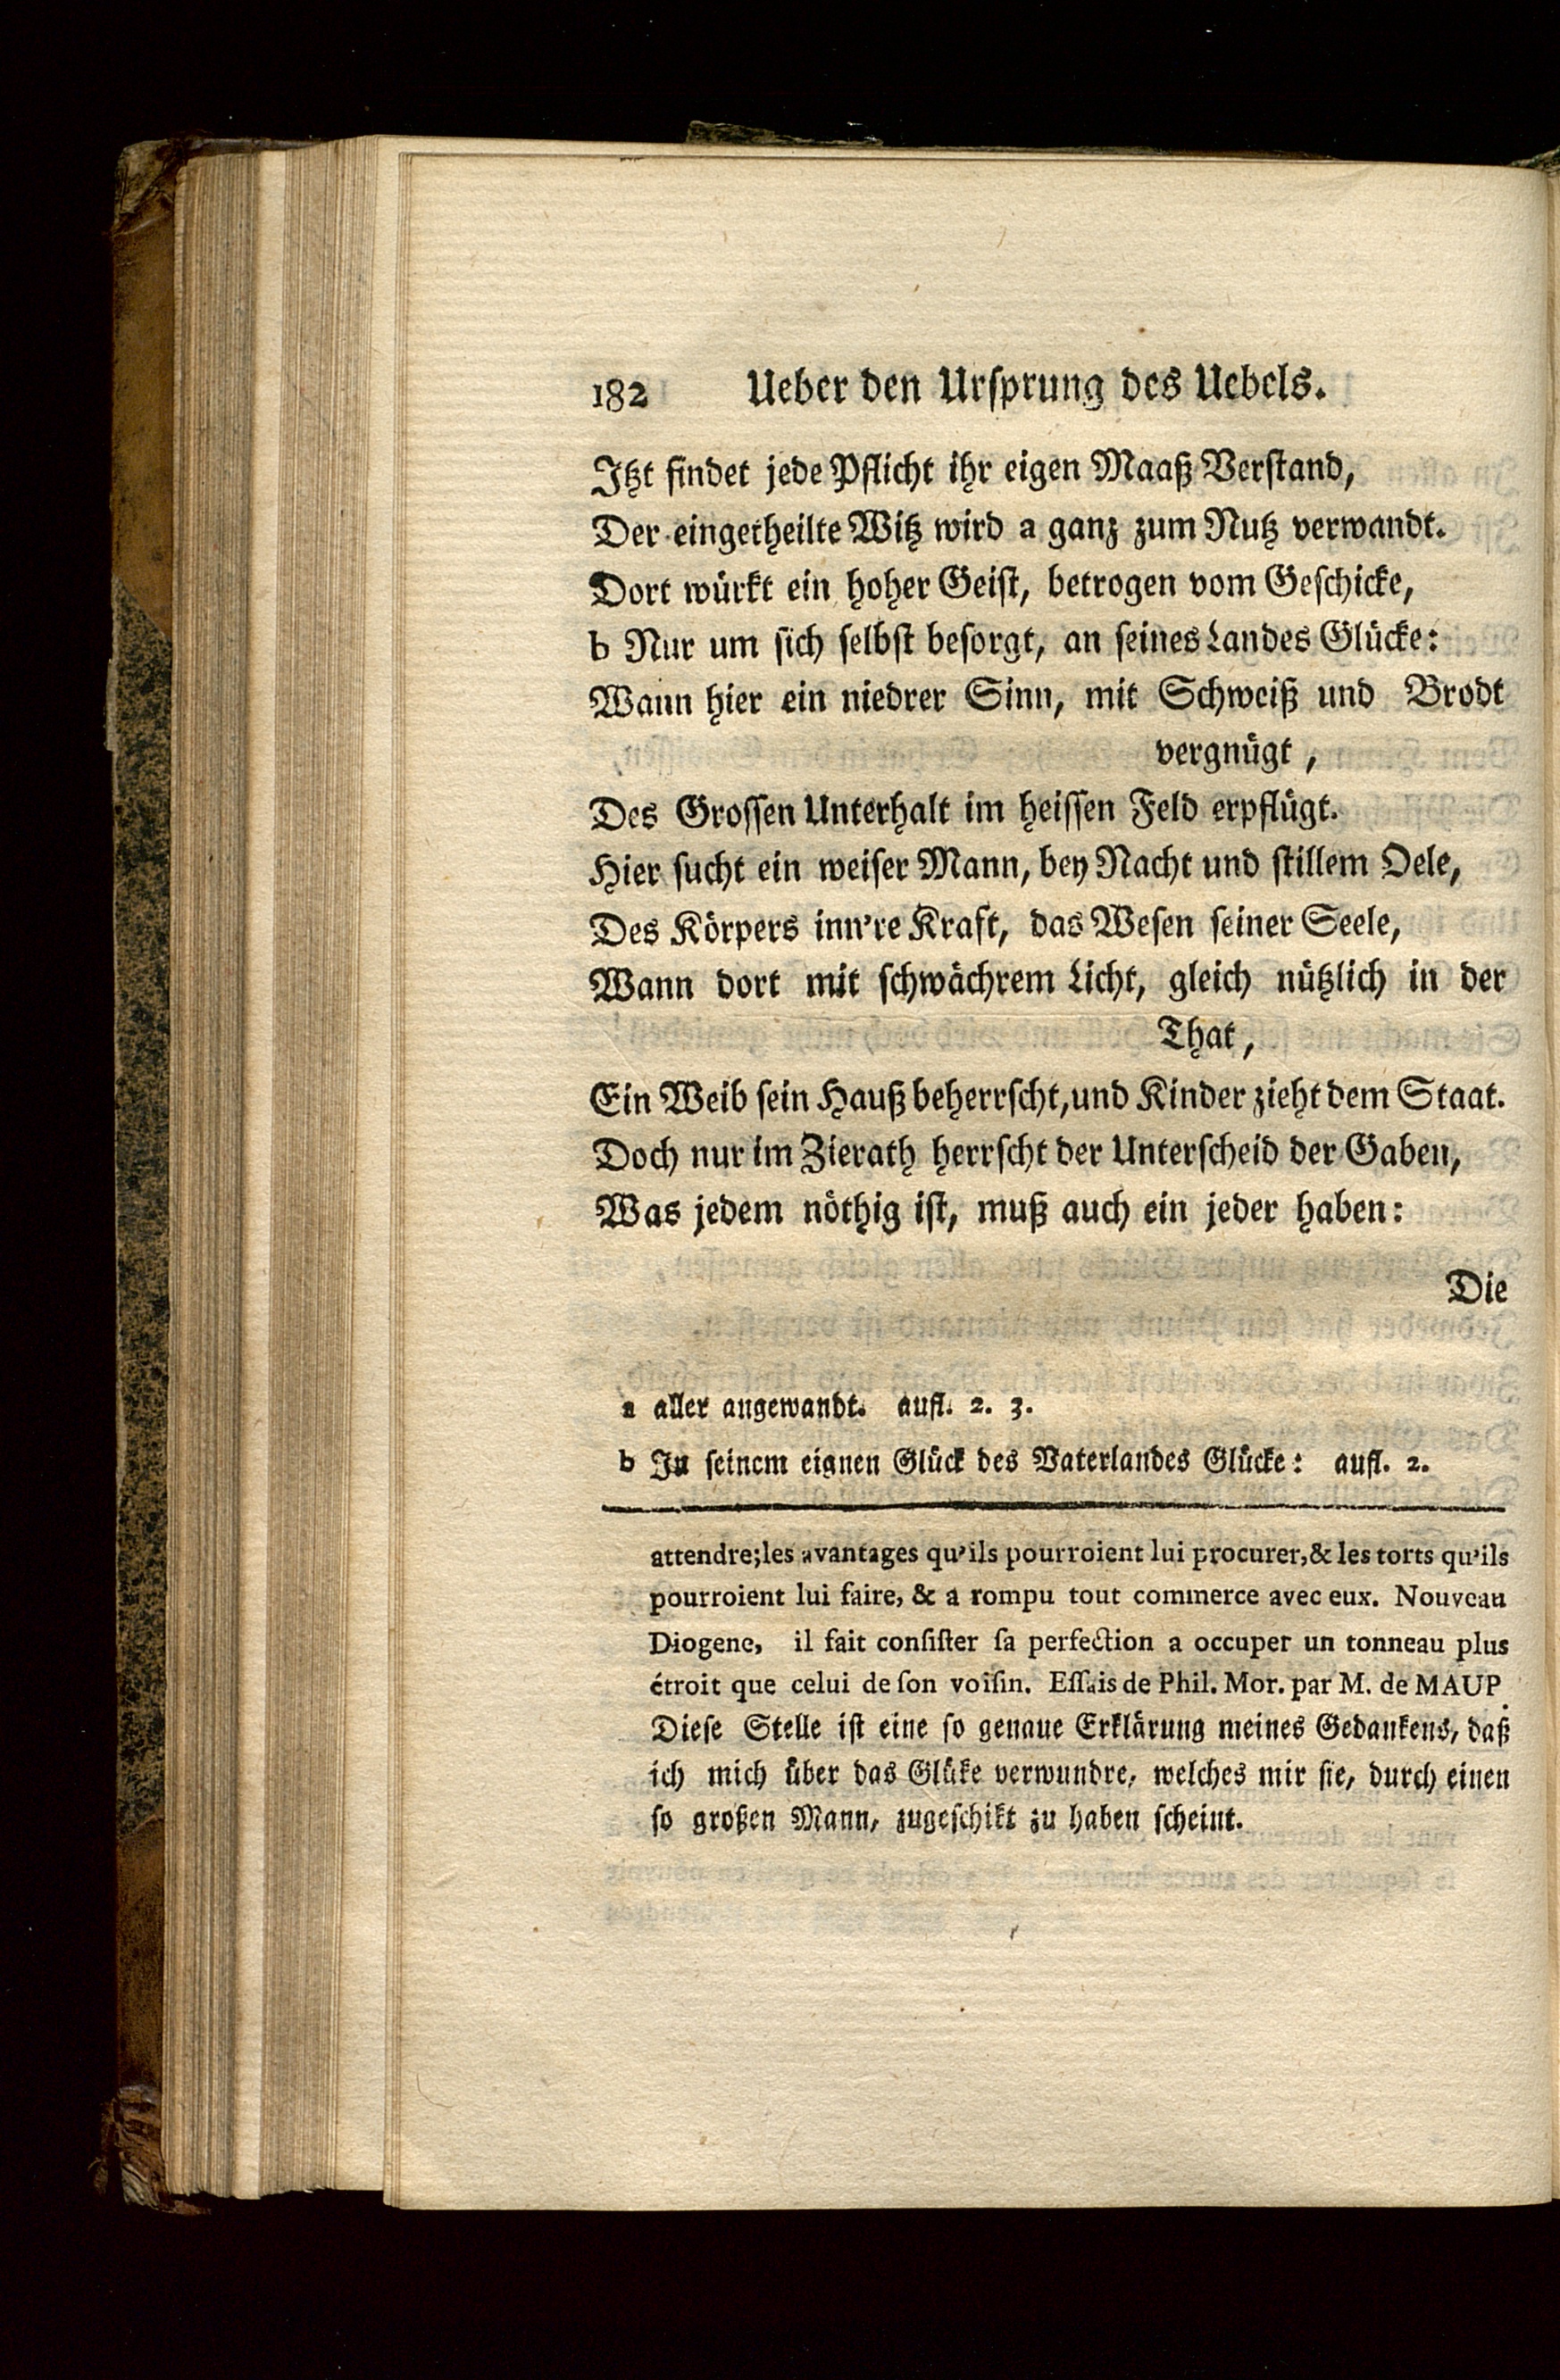 182 Ueber den Ursprung des Uebels.
Itzt findet jede Pflicht ihr eigen Maaß Verstand,
Der eingetheilte Witz wird a ganz zum Nutz verwandt.
Dort würkt ein hoher Geist, betrogen vom Geschicke,
b Nur um sich selbst besorgt, an seines Landes Glücke:
Wann hier ein niedrer Sinn, mit Schweiß und Brodt
vergnügt,
Des Grossen Unterhalt im heissen Feld erpflügt.
Hier sucht ein weiser Mann, bey Nacht und stillem Oele,
Des Körpers inn're Kraft, das Wesen seiner Seele,
Wann dort mit schwächrem Licht, gleich nützlich in der
That,
Ein Weib sein Hauß beherrscht, und Kinder zieht dem Staat.
Doch nur im Zierath herrscht der Unterscheid der Gaben,
Was jedem nöthig ist, muß auch ein jeder haben:
Die
a aller angewandt. aufl. 2. 3.
b In seinem eignen Glück des Vaterlandes Glücke: aufl. 2.
attendre; les avantages qu'ils pourroient lui procurer, & les torts qu'ils
pourroient lui faire, & a rompu tout commerce avec eux. Nouveau
Diogene, il fait consister sa perfection a occuper un tonneau plus
étroit que celui de son voisin. Essais de Phil. Mor. par M. de MAUP.
Diese Stelle ist eine so genaue Erklärung meines Gedankens, daß
ich mich über das Glüke verwundre, welches mir sie, durch einen
so großen Mann, zugeschikt zu haben scheint.